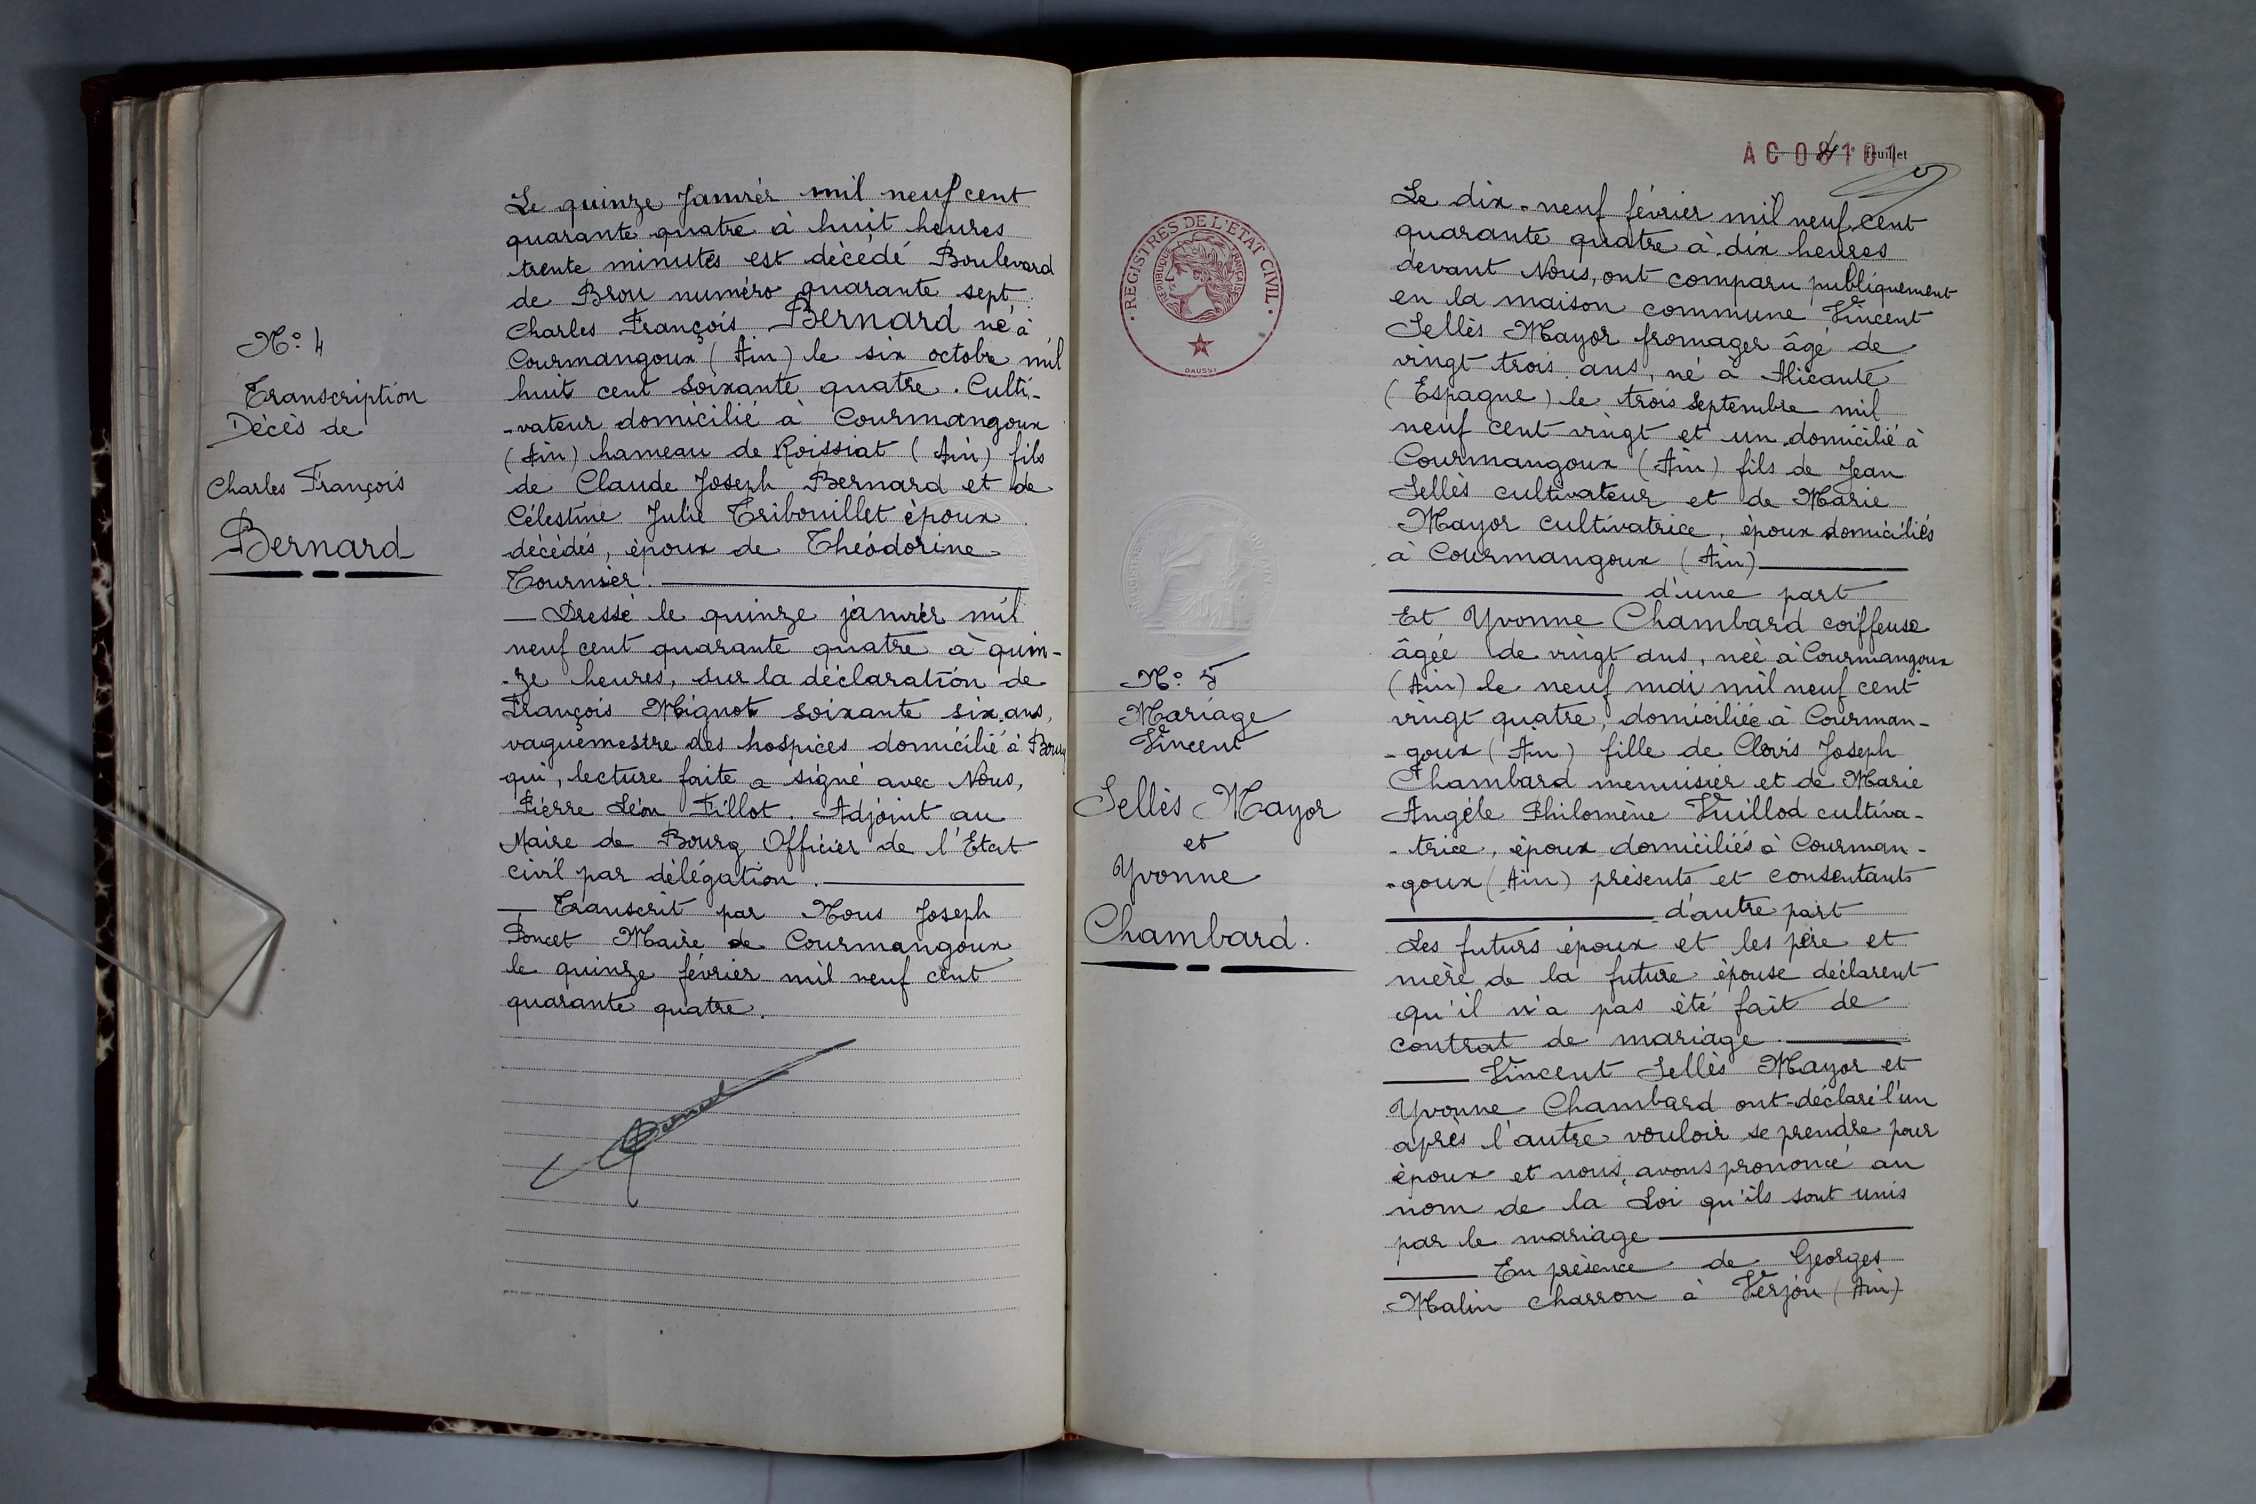 N° 4
Transcription
Décès de
Charles François
Bernard
Le quinze Janvier mil neuf cent
quarante quatre à huit heures
trente minutes est décédé Boulevard
de Brou numéro quarante sept
Charles François Bernard né à
Courmangoux (Ain) le six octobre mil
huit cent soixante quatre. Culti-
-vateur domicilié à Courmangoux
(Ain) hameau de Roissiat (Ain) fils
de Claude Joseph Bernard et de
Célestine Julie Tribouillet époux
décédés, époux de Théodorine
Tournier.
Dressé le quinze janvier mil
neuf cent quarante quatre à quin-
-ze heures, sur la déclaration de
François Mignot soixante six ans,
vaguemestre des hospices domicilié à Bourg
qui, lecture faite a signé avec Nous,
Pierre Léon Fillot. Adjoint au
Maire de Bourg Officier de l'Etat
civil par délégation.
Transcrit par Nous Joseph
Poncet Maire de Courmangoux
le quinze février mil neuf cent
quarante quatre.
Poncet
AC 08101
feuillet
REGISTRES DE L'ETAT CIVIL
REPUBLIQUE FRANÇAISE
DAUSSY
N° 5
Mariage
Vincent
Sellès Mayor
et
Yvonne
Chambard.
Le dix-neuf février mil neuf cent
quarante quatre à dix heures
devant Nous, ont comparu publiquement
en la maison commune Vincent
Sellès Mayor fromager âgé de
vingt trois ans, né à Alicante
(Espagne) le trois Septembre mil
neuf cent vingt et un domicilié à
Courmangoux (Ain) fils de Jean
Sellès cultivateur et de Marie
Mayor cultivatrice, époux domiciliés
à Courmangoux (Ain)
d'une part
Et Yvonne Chambard coiffeuse
âgée de vingt ans, née à Courmangoux
(Ain) le neuf mai mil neuf cent
vingt quatre, domiciliée à Courman-
-goux (Ain) fille de Clovis Joseph
Chambard menuisier et de Marie
Angèle Philomène Vuillod cultiva-
-trice, époux domiciliés à Courman-
-goux (Ain) présents et consentants
d'autre part
Les futurs époux et les père et
mère de la future épouse déclarent
qu'il n'a pas été fait de
contrat de mariage
Vincent Sellès Mayor et
Yvonne Chambard ont déclaré l'un
après l'autre vouloir se prendre pour
époux et nous avons prononcé au
nom de la Loi qu'ils sont unis
par le mariage
En présence de Georges
Malin charron à Verjon (Ain)